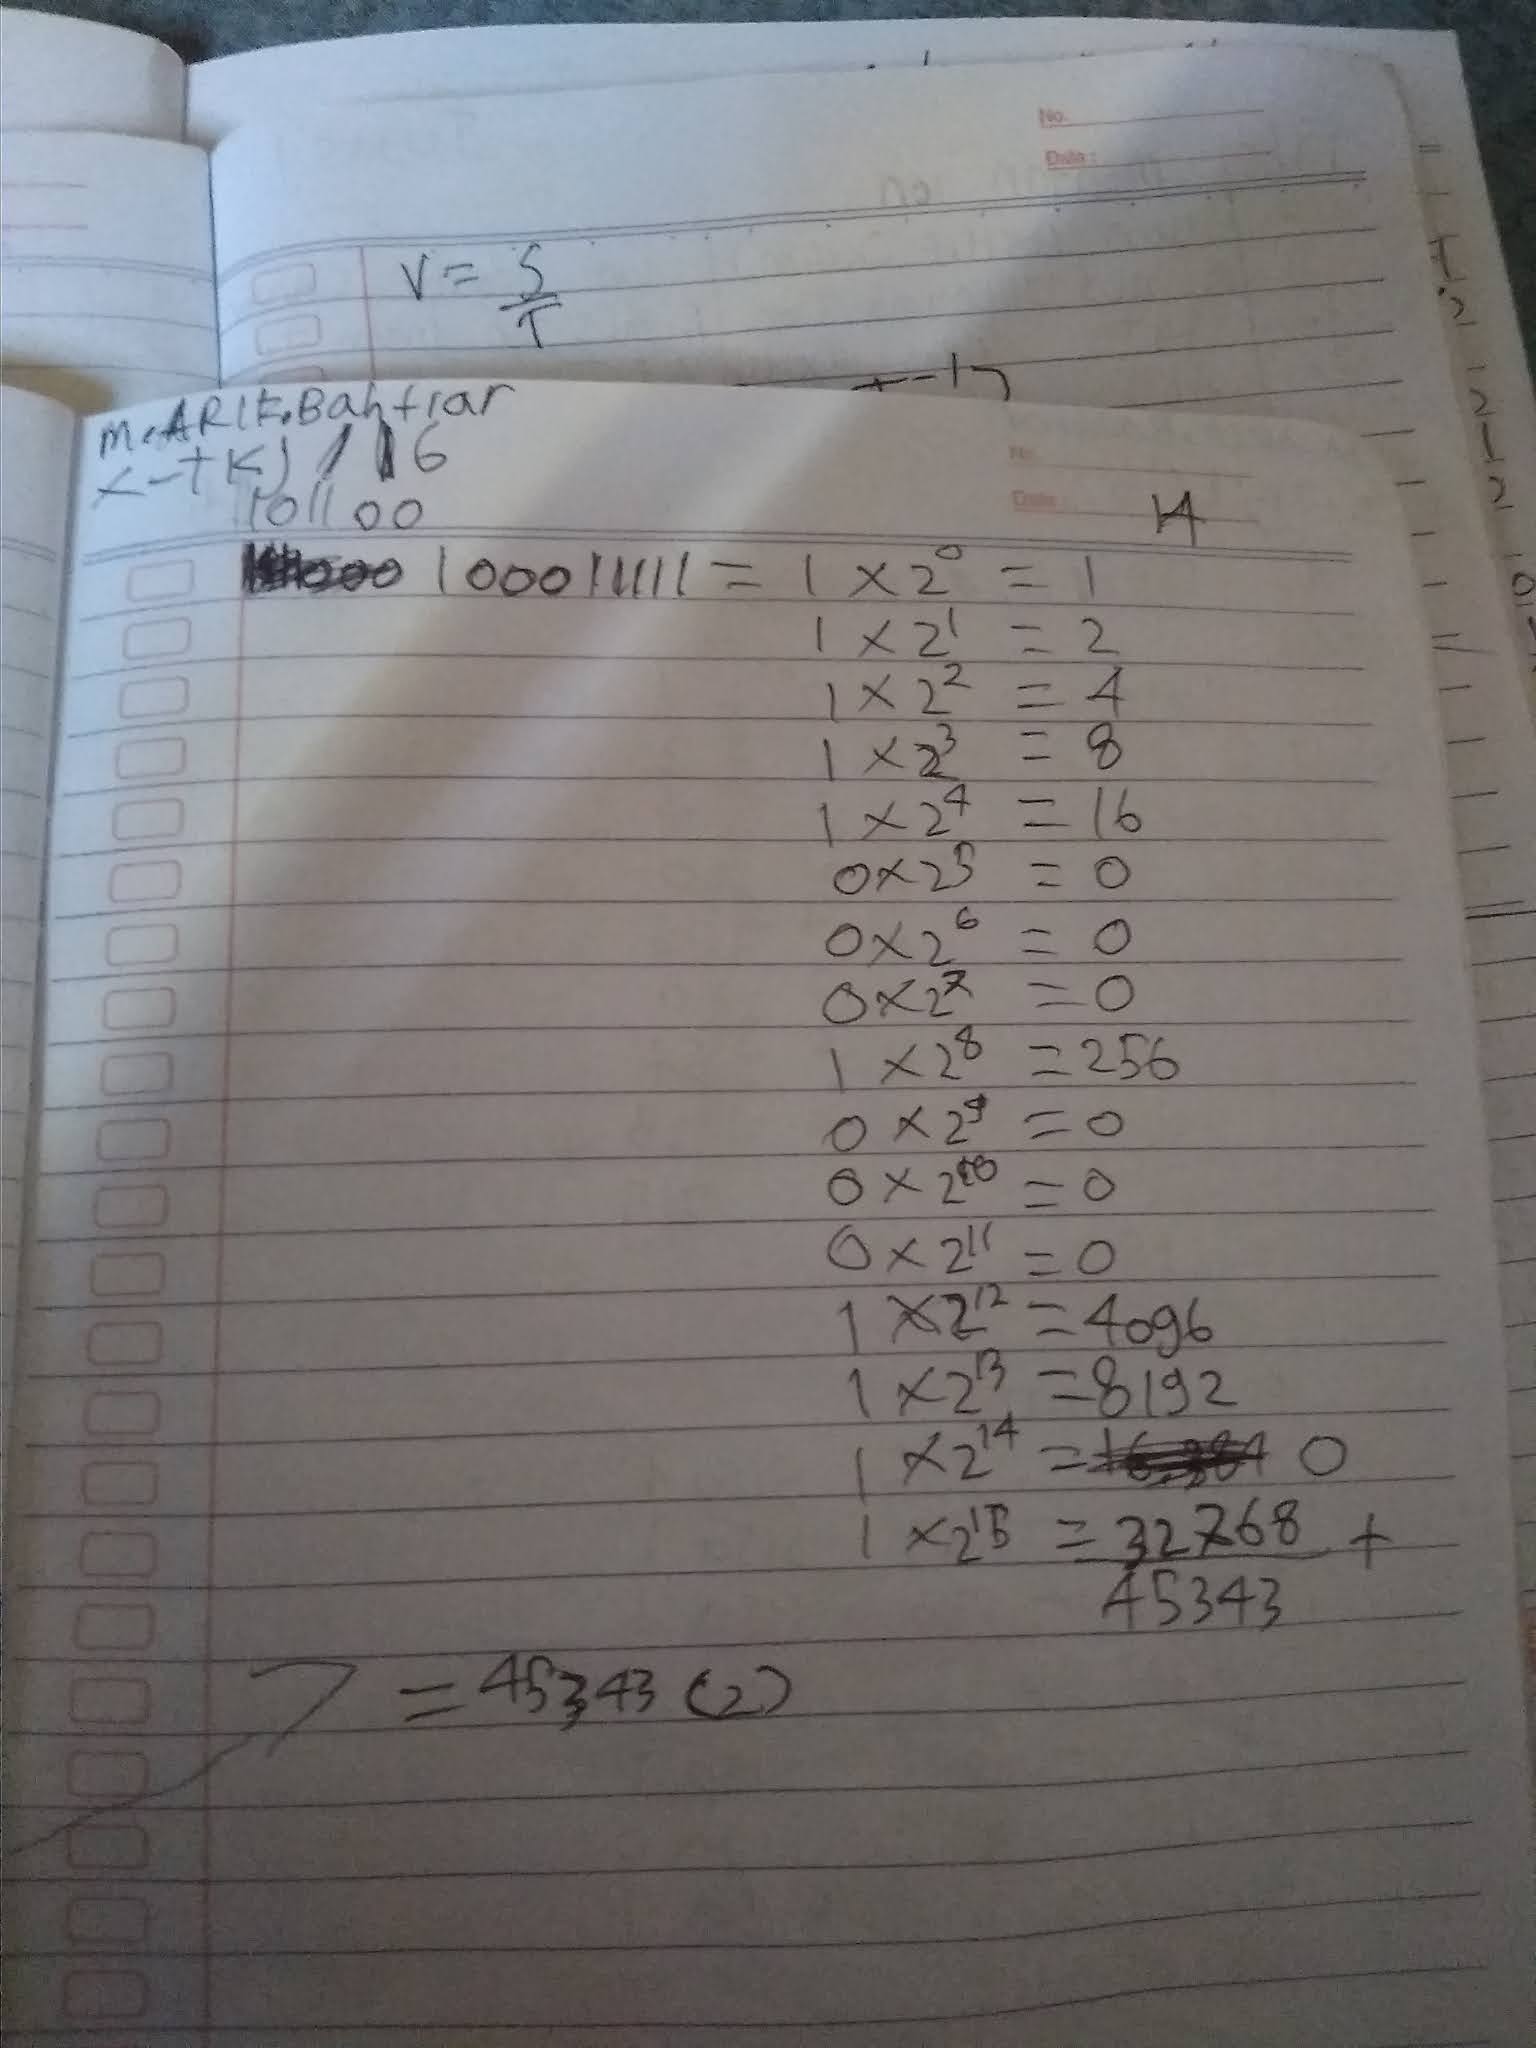 No.
Date:
V = S
T
M. ARIF. Bahtiar
X-TKJ / 16
No.
Date:
14
101100
100011111 = 1 × 2⁰ = 1
1 × 2¹ = 2
1 × 2² = 4
1 × 2³ = 8
1 × 2⁴ = 16
0 × 2⁵ = 0
0 × 2⁶ = 0
0 × 2⁷ = 0
1 × 2⁸ = 256
0 × 2⁹ = 0
0 × 2¹⁰ = 0
0 × 2¹¹ = 0
1 × 2¹² = 4096
1 × 2¹³ = 8192
1 × 2¹⁴ = 0
1 × 2¹⁵ = 32768 +
45343
= 45343 (2)